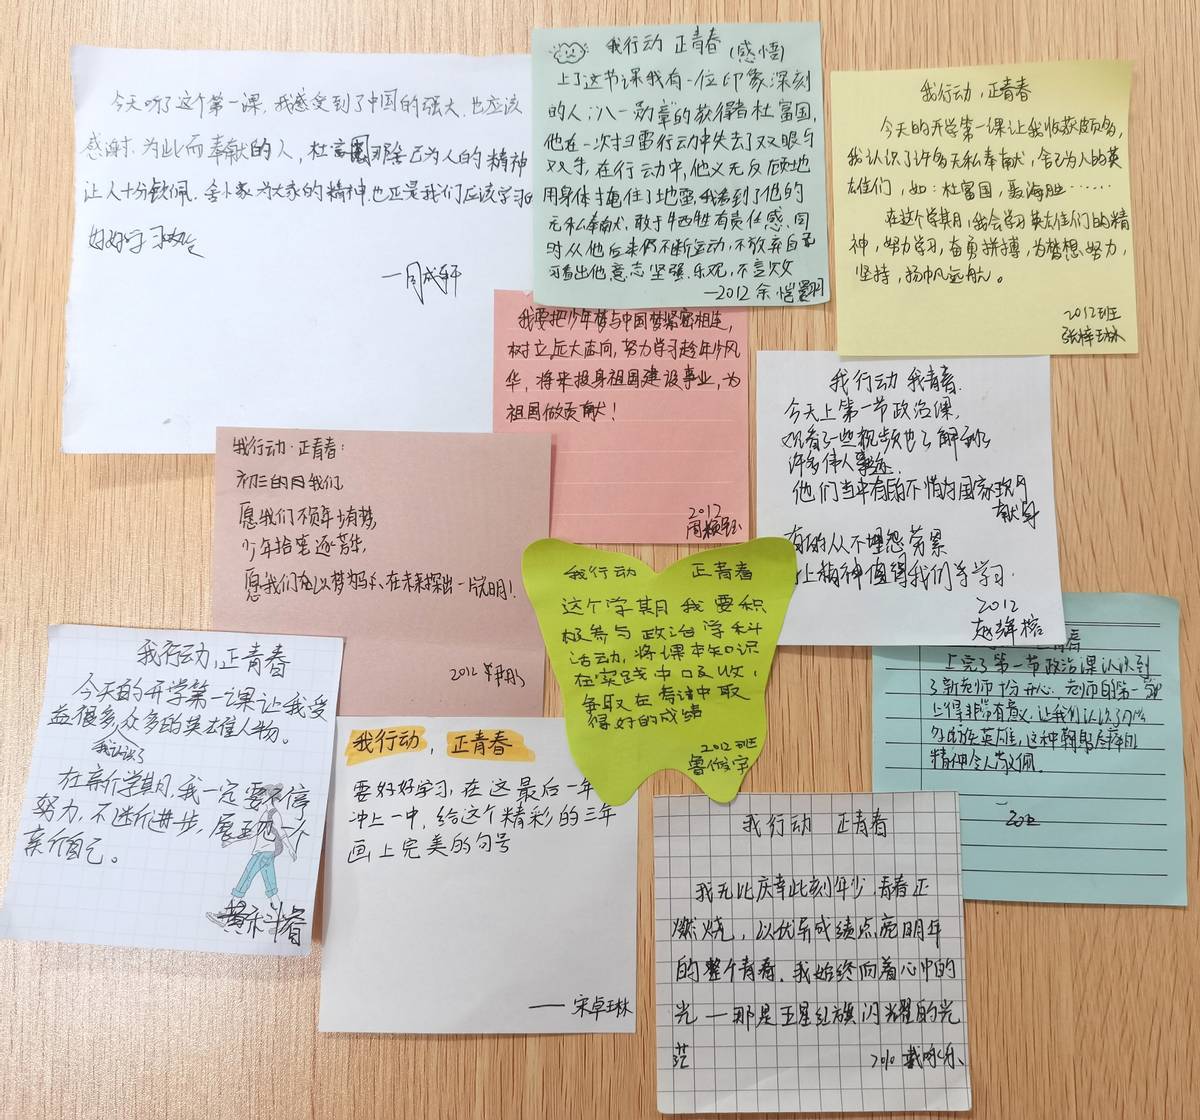 今天听了这个第一课,我感受到了中国的强大,也应该
感谢为此而奉献的人,杜富国那舍己为人的精神
让人十分钦佩。舍小家为大家的精神也正是我们应该学习的
好好学习
—周成轩
我行动 正青春(感悟)
上了这节课我有一位印象深刻
的人:八一勋章的获得者杜富国,
他在一次扫雷行动中失去了双眼与
双手,在行动中,他义无反顾地
用身体掩住了地雷,我看到了他的
无私奉献,敢于牺牲有责任感,同
时从他后来仍不断运动,不放弃自己
可看出他意志坚强、乐观,不言败
—2012 余恺翼
我行动,正青春
今天的开学第一课让我收获颇多,
我认识了许多无私奉献,舍己为人的英
雄们,如:杜富国,聂海胜……
在这个学期,我会学习英雄们的精
神,努力学习,奋勇拼搏,为梦想努力,
坚持,扬帆远航。
2012班
张梓琳
我要把少年梦与中国梦紧密相连,
树立远大志向,努力学习趁年少风
华,将来投身祖国建设事业,为
祖国做贡献!
2012
周颖
我行动 我青春.
今天上第一节政治课,
观看了一些视频也了解到了
许多伟人事迹.
他们当中有的不惜为国家
献身
有的从不埋怨劳累
精神值得我们学习.
2012
赵
我行动·正青春:
初三的我们,
愿我们不负年少有梦,
少年
愿我们以梦为马,在未来探出一片光明!
2012
我行动 正青春
这个学期我要积
极参与政治学科
活动,将课本知识
在实践中吸收,
争取在考试中取
得好的成绩
2012班
鲁俊宇
青春
上完了第一节政治课认识到
了新老师十分开心.老师的第一课
上得非常有意义,让我们认识了
英雄,这种
精神令人敬佩。
我行动,正青春
今天的开学第一课让我受
益很多,众多的英雄人物。
我认识了
在新学期,我一定要不停
努力,不断进步,展至现一个
新自己。
黄禾
我行动,正青春
要好好学习,在这最后一年
冲上一中,给这个精彩的三年
画上完美的句号
—— 宋卓琳
我行动 正青春
我无比庆幸此刻年少,青春正
燃烧,以优异成绩点亮明年
的整个青春,我始终向着心中的
光—那是五星红旗闪耀的光
芒